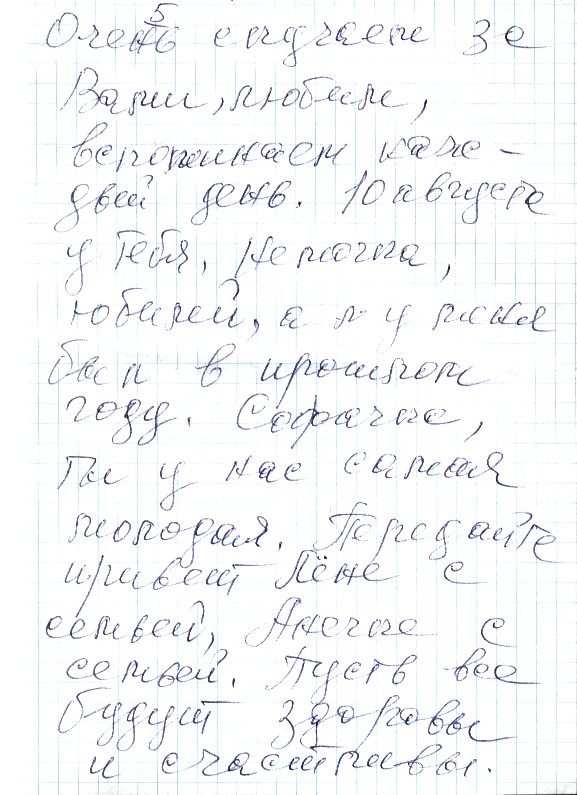 5
Очень скучаем за
Вами, любим,
вспоминаем каж-
дый день. 10 августа
у Тебя, Немочка,
юбилей, а у меня
был в прошлом
году. Софочка,
Ты у нас самая
молодая. Передайте
привет Лёне с
семьей, Анечке с
семьей. Пусть все
будут здоровы
и счастливы.